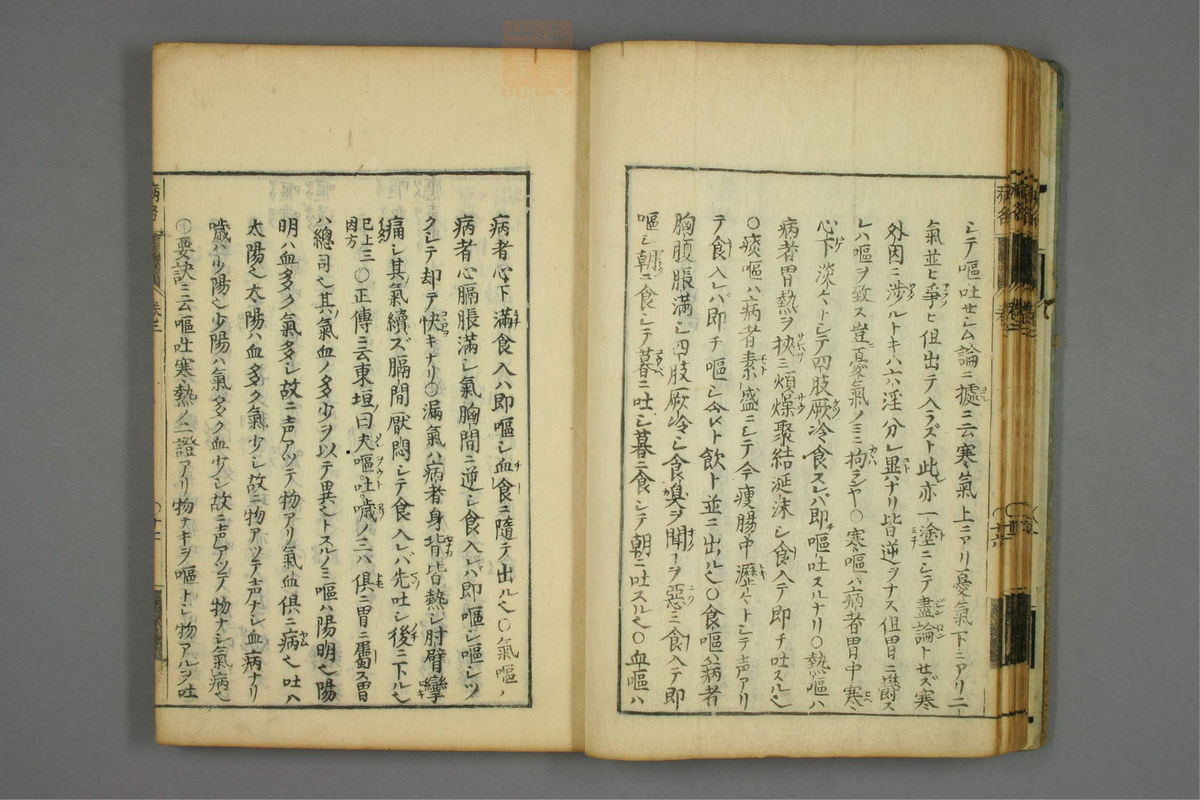 シテ嘔吐せシム論ニ據ニ云寒氣上ニアリ憂氣下ニアリ二
氣並ヒ爭ヒ但出テ入ラズト此亦一塗ニシテ盡論トせズ寒
外因ニ渉ルトキハ六淫分レ異ナリ皆逆ヲナス但胃ニ欝ス
レハ嘔ヲ致ス豈憂氣ノミニ拘ランヤ〇寒嘔ハ病者胃中寒
心下淡々トシテ四肢厥冷食スレバ即嘔吐スルナリ〇熱嘔ハ
病者胃熱ヲ挾ミ煩燥聚結涎沫シ食入テ即チ吐スルヒ
〇痰嘔ハ病者素盛ニシテ今痩腸中瀝々トシテ声アリ
テ食入レバ即チ嘔シ食ト飲ト並ニ出ルヒ〇食嘔ハ病者
胸腹脹満シ四肢厥冷シ食臭ヲ聞ヿヲ惡ミ食入テ即
嘔シ朝ニ食シテ暮ニ吐シ暮ニ食シテ朝ニ吐スルヒ〇血嘔ハ
病者心下滿食入ハ即嘔シ血食ニ隨テ出ルヒ〇氣嘔ノ
病者心膈脹滿シ氣胸間ニ逆シ食入レバ即嘔シ嘔シツ
クシテ却テ快キナリ〇漏氣ハ病者身背皆熱シ肘臂攣
痛シ其氣續ズ膈間厭悶シテ食入レバ先吐シ後ニ下ルヒ
已上三因方〇正傳ニ云東垣曰夫嘔吐噦ノ三ハ俱ニ胃ニ屬ス胃
ハ總司ヒ其氣血ノ多少ヲ以テ異ヘトスルノミ嘔ハ陽明ヒ陽
明ハ血多ク氣多シ故ニ声アツテ物アリ氣血俱ニ病ヒ吐ハ
太陽ヒ太陽ハ血多ク氣少シ故ニ物アツテ声ナシ血病ナリ
噦ハ少陽ヒ少陽ハ氣多ク血少シ故ニ声アツテ物ナシ氣病ヒ
〇要訣ニ云嘔吐寒熱ノ二證アリ物ナキヲ嘔トシ物アルヲ吐